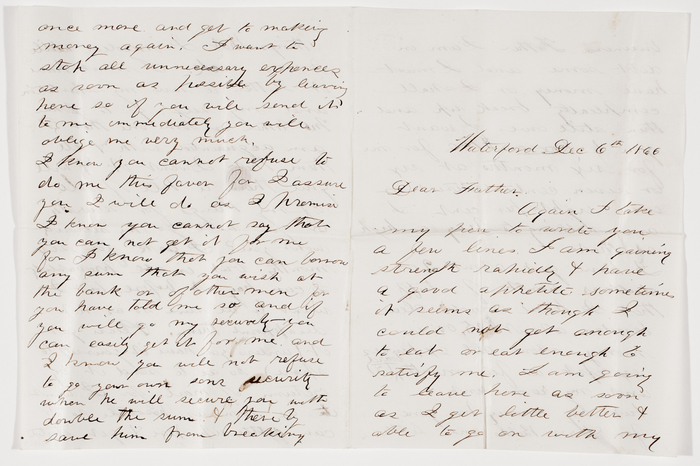 once more and get to making
money again. I want to
stop all unnecessary expences
as soon as possible by leaving
here so if you will send it
to me immediately you will
oblige me very much.
I know you cannot refuse to
do me this favor for I assure
you I will do as I promise
I know you cannot say that
you can not get it for me
for I know that you can borrow
any sum that you wish at
the bank or of other men for
you have told me so and if
you will go my security you
can easily get it for me. and
I know you will not refuse
to go your own sons security
when he will secure you with
double the sum. & thereby
save him from breaking
Waterford Dec 6th 1866
Dear Father.
Again I take
my pen to write you
a few lines I am gaining
strength rapidly & have
a good aphetite sometimes
it seems as though I
could not get enough
to eat or eat enough to
satisfy me. I am going
to leave here as soon
as I get little better &
able to go on with my